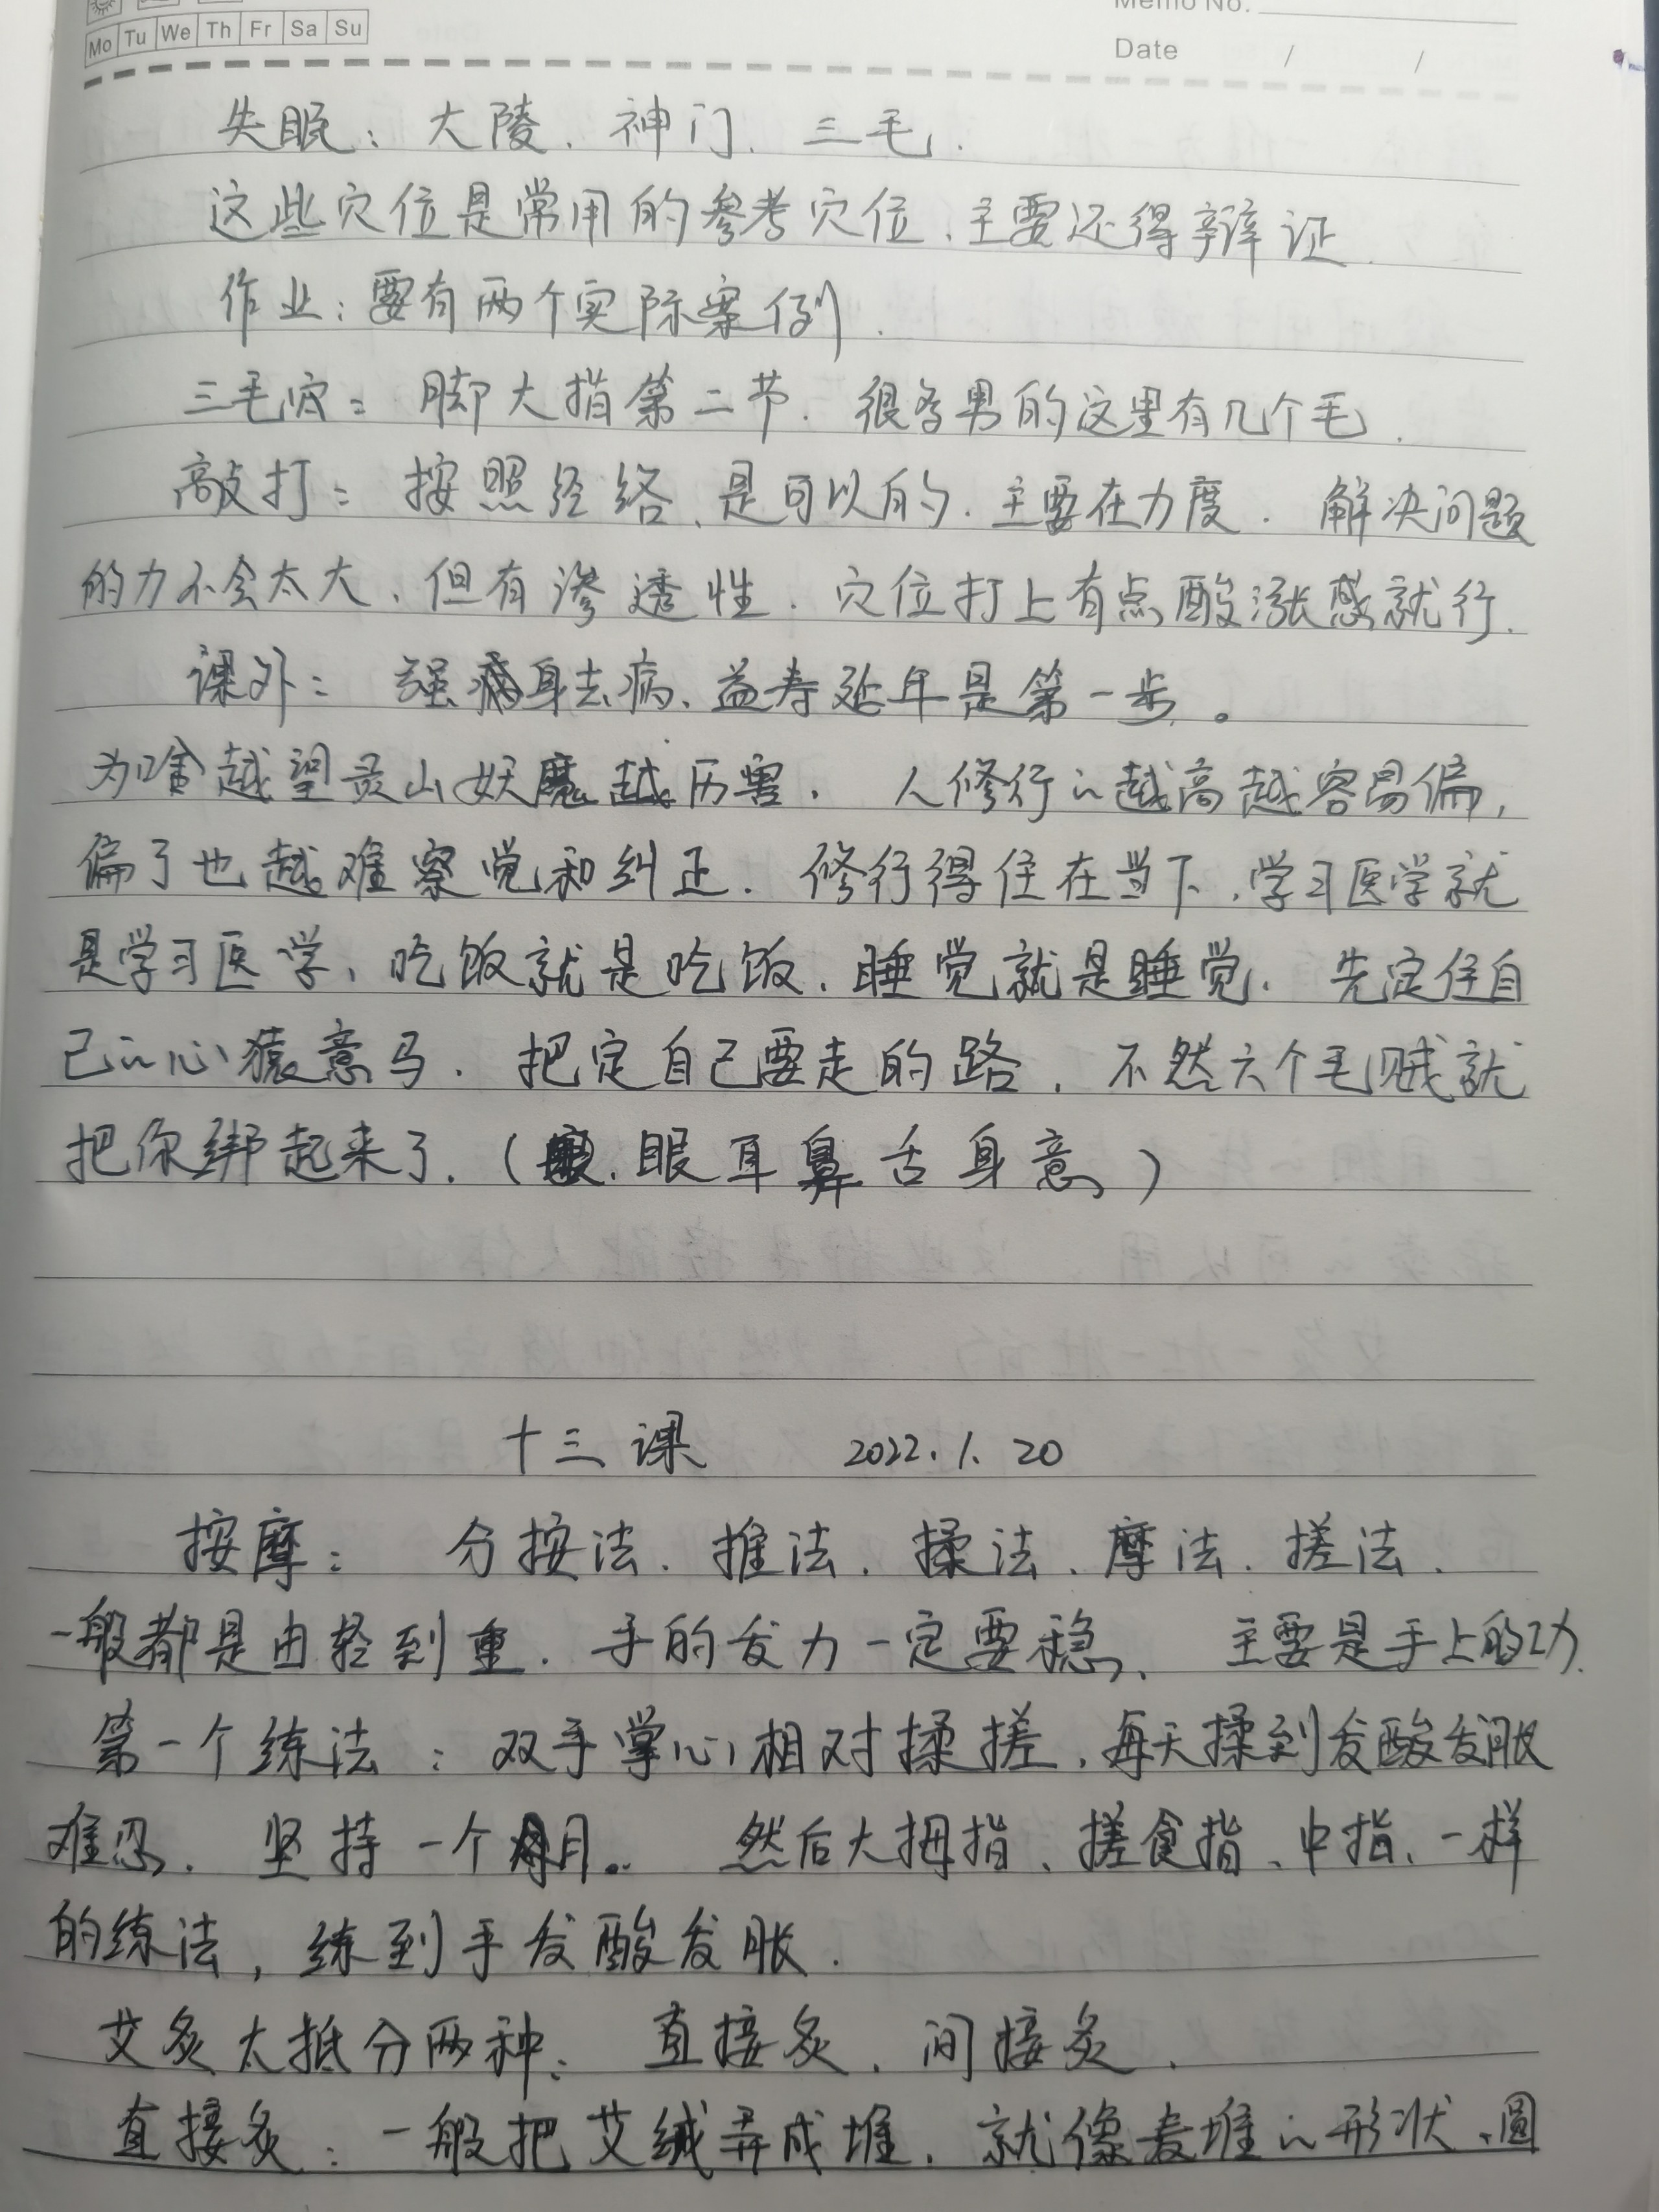 Memo No.
Mo Tu We Th Fr Sa Su
Date / /
失眠：大陵、神门、三毛.
这些穴位是常用的参考穴位、主要还得辩证.
作业：要有两个实际案例.
三毛穴：脚大指第二节. 很多男的这里有几个毛.
敲打：按照经络、是可以的. 主要在力度. 解决问题
的力不会太大、但有渗透性. 穴位打上有点酸涨感就行.
课外：强身去病、益寿延年是第一步。
为啥越望灵山妖魔越历害. 人修行的越高越容易偏,
偏了也越难察觉和纠正. 修行得住在当下.学习医学就
是学习医学、吃饭就是吃饭、睡觉就是睡觉. 先定住自
己的心猿意马. 把定自己要走的路. 不然六个毛贼就
把你绑起来了.（眼耳鼻舌身意）
十三课 2022.1.20
按摩：分按法、推法、揉法、摩法、搓法.
一般都是由轻到重. 手的发力一定要稳、主要是手上的功.
第一个练法：双手掌心相对揉搓,每天揉到发酸发胀
难忍. 坚持一个月. 然后大拇指、搓食指、中指、一样
的练法, 练到手发酸发胀.
艾炙太抵分两种：直接炙、间接炙.
直接炙：一般把艾绒弄成堆. 就像麦堆的形状、圆